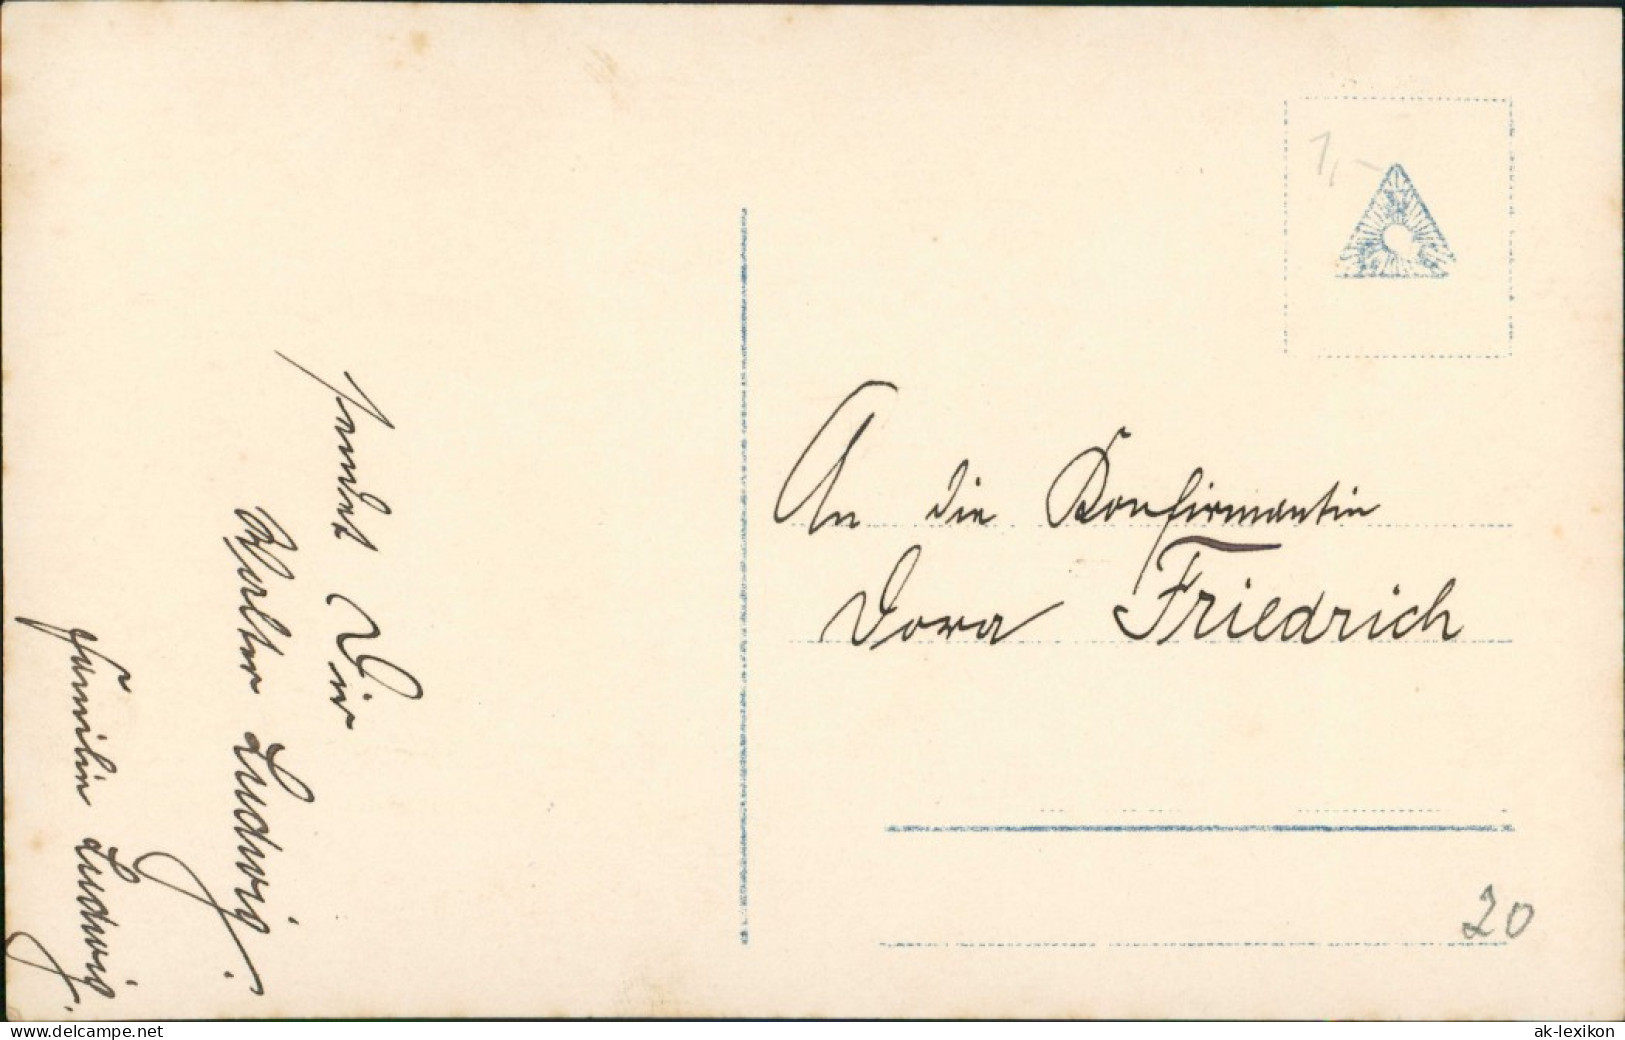 sendet Dir
Walter Ludwig.
Familie Ludwig.
1,-
An die Konfirmantin
Dora Friedrich
20
www.delcampe.net
ak-lexikon